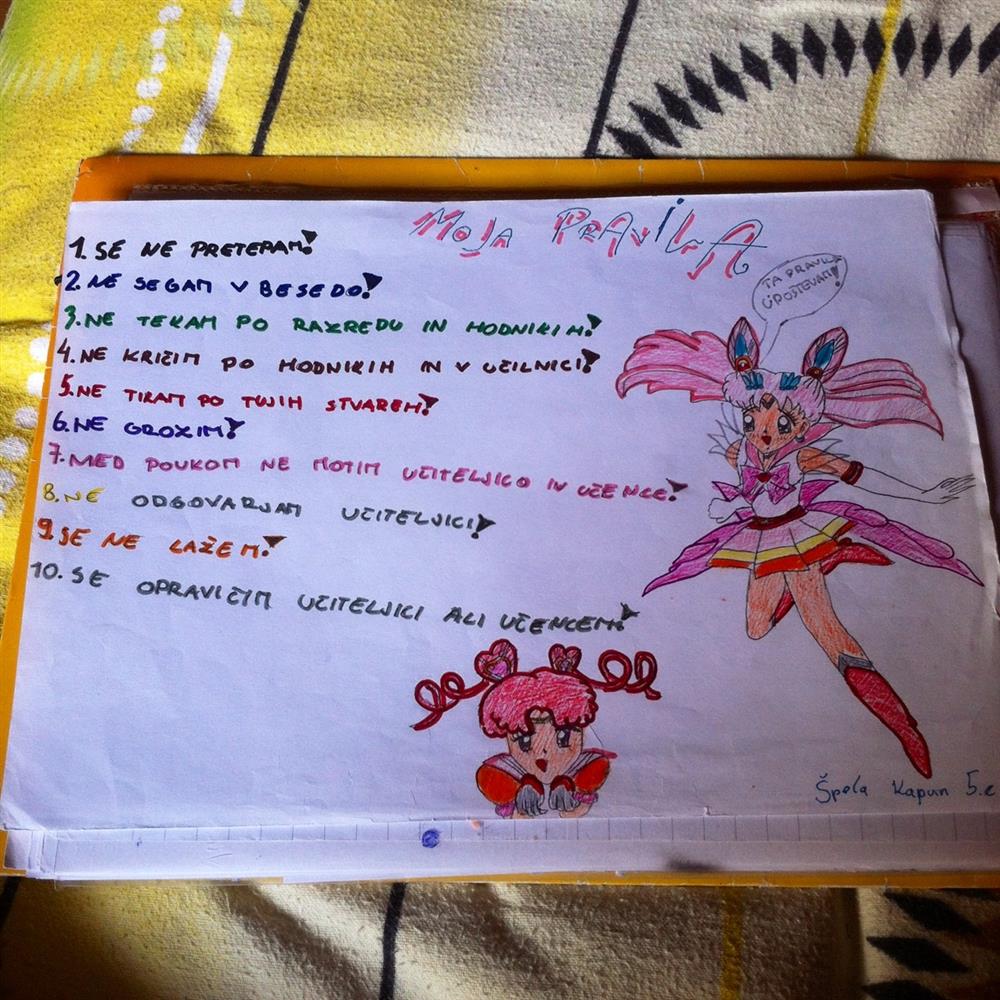 MOJA PRAVILA
1. SE NE PRETEPAM!
2. NE SEGAM V BESEDO!
3. NE TEKAM PO RAZREDU IN HODNIKIH!
4. NE KRIČIM PO HODNIKIH IN V UČILNICI!
5. NE TIKAM PO TUJIH STVAREH!
6. NE GROZIM!
7. MED POUKOM NE MOTIM UČITELJICO IN UČENCE!
8. NE ODGOVARJAM UČITELJICI!
9. SE NE LAŽEM!
10. SE OPRAVIČIM UČITELJICI ALI UČENCEM!
TA PRAVILA
UPOŠTEVAM!
Špela Kapun 5.c